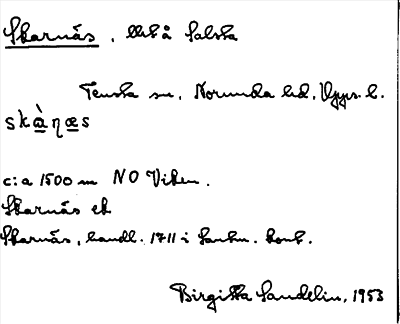 Skarnäs, Utö å Salsta
Tensta sn, Norunda hd, Upps. l.
skà̱ṇæ̱s
c:a 1500 m NO Viken.
Skarnäs ek
Skarnäs, handl. 1711 i Lantm. kont.
Birgitta Sandelin, 1953